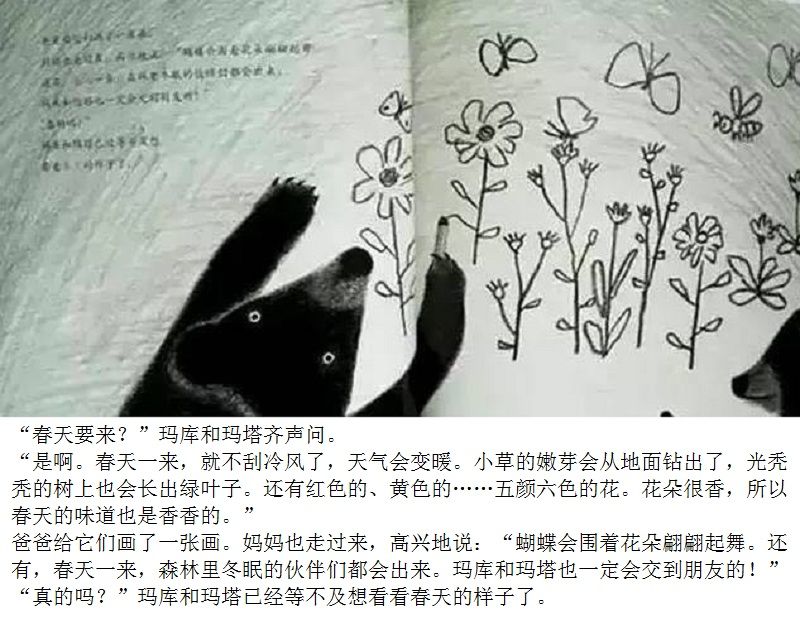 “春天要来？”玛库和玛塔齐声问。
“是啊。春天一来，就不刮冷风了，天气会变暖。小草的嫩芽会从地面钻出了，光秃
秃的树上也会长出绿叶子。还有红色的、黄色的……五颜六色的花。花朵很香，所以
春天的味道也是香香的。”
爸爸给它们画了一张画。妈妈也走过来，高兴地说：“蝴蝶会围着花朵翩翩起舞。还
有，春天一来，森林里冬眠的伙伴们都会出来。玛库和玛塔也一定会交到朋友的！”
“真的吗？”玛库和玛塔已经等不及想看看春天的样子了。